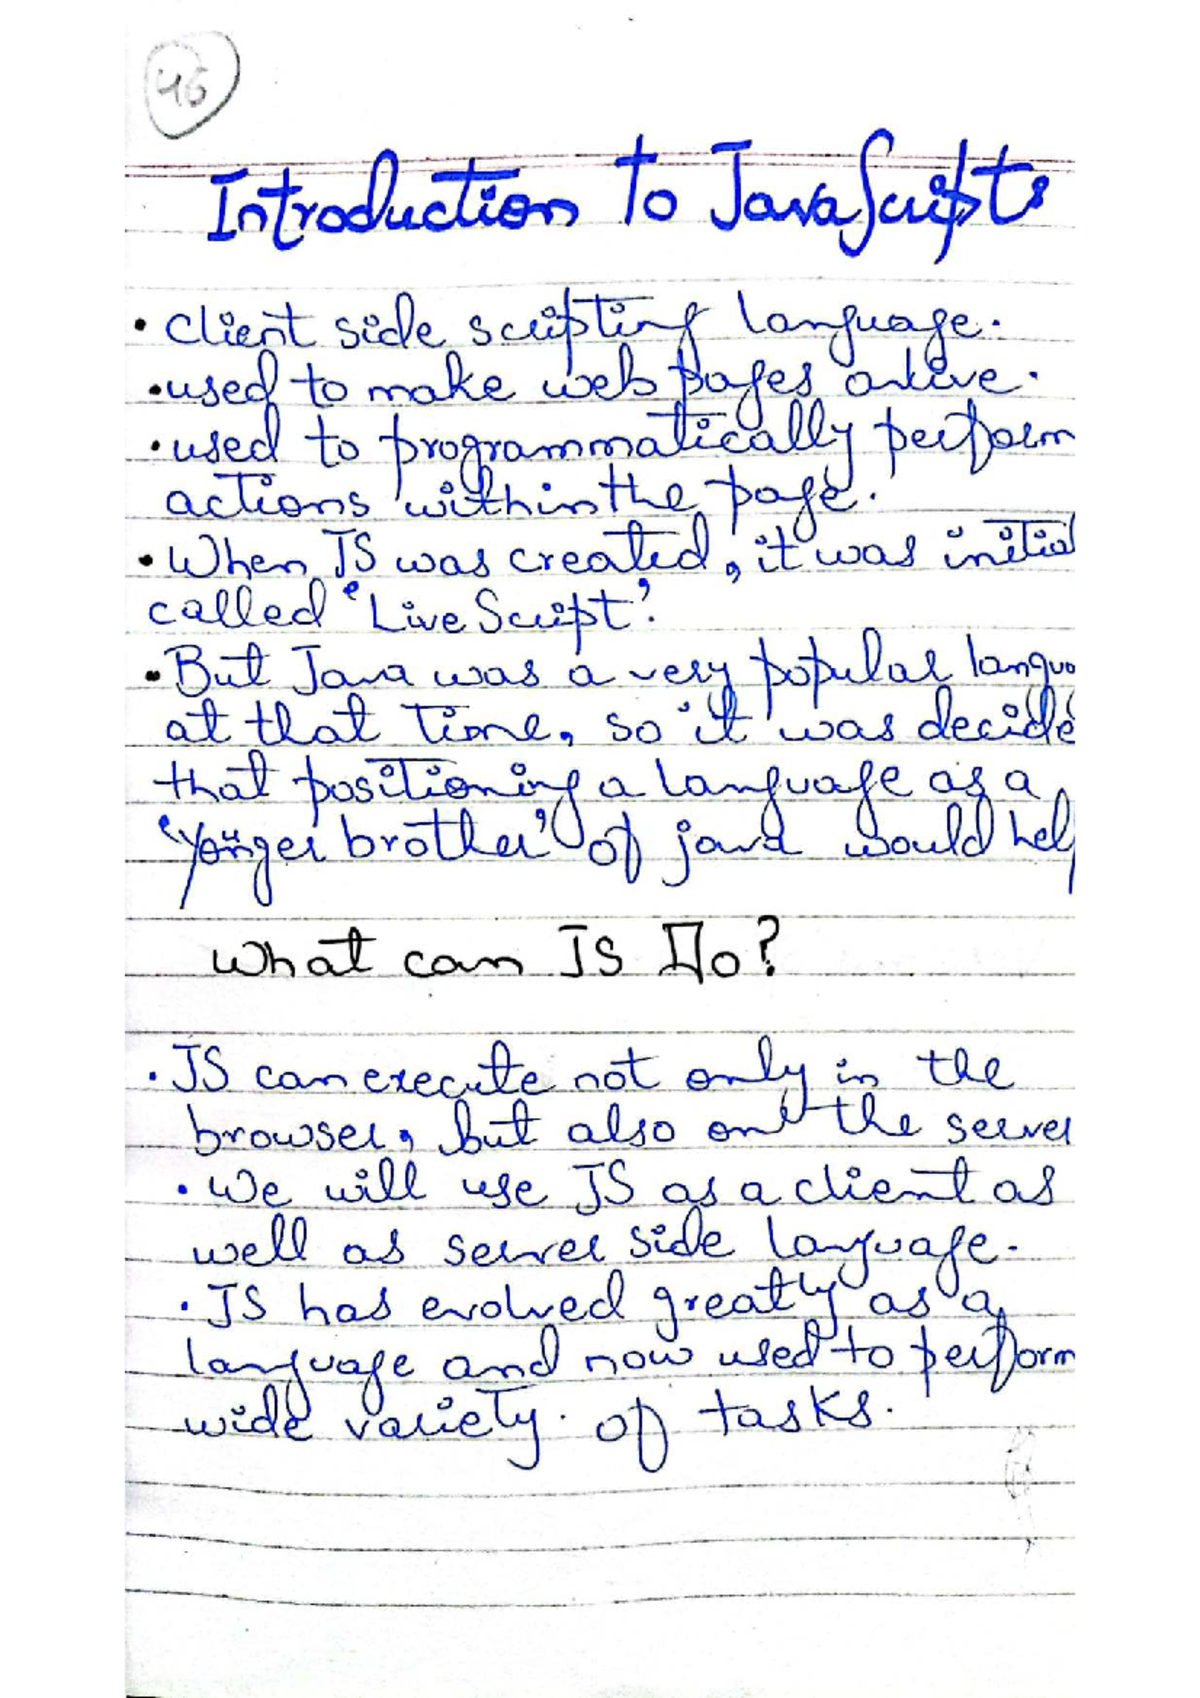 45
Introduction To JavaScripts
• Client side scripting language.
• used to make web pages alive.
• used to programmatically perform
actions within the page.
• When JS was created, it was initial
called 'LiveScript'.
• But Java was a very popular langua
at that time, so it was decide
that positioning a language as a
'Yonger brother' of java would help
What can JS Do?
• JS can execute not only in the
browser, but also on the server
• We will use JS as a client as
well as server side language.
• JS has evolved greatly as a
language and now used to perform
wide variety of tasks.